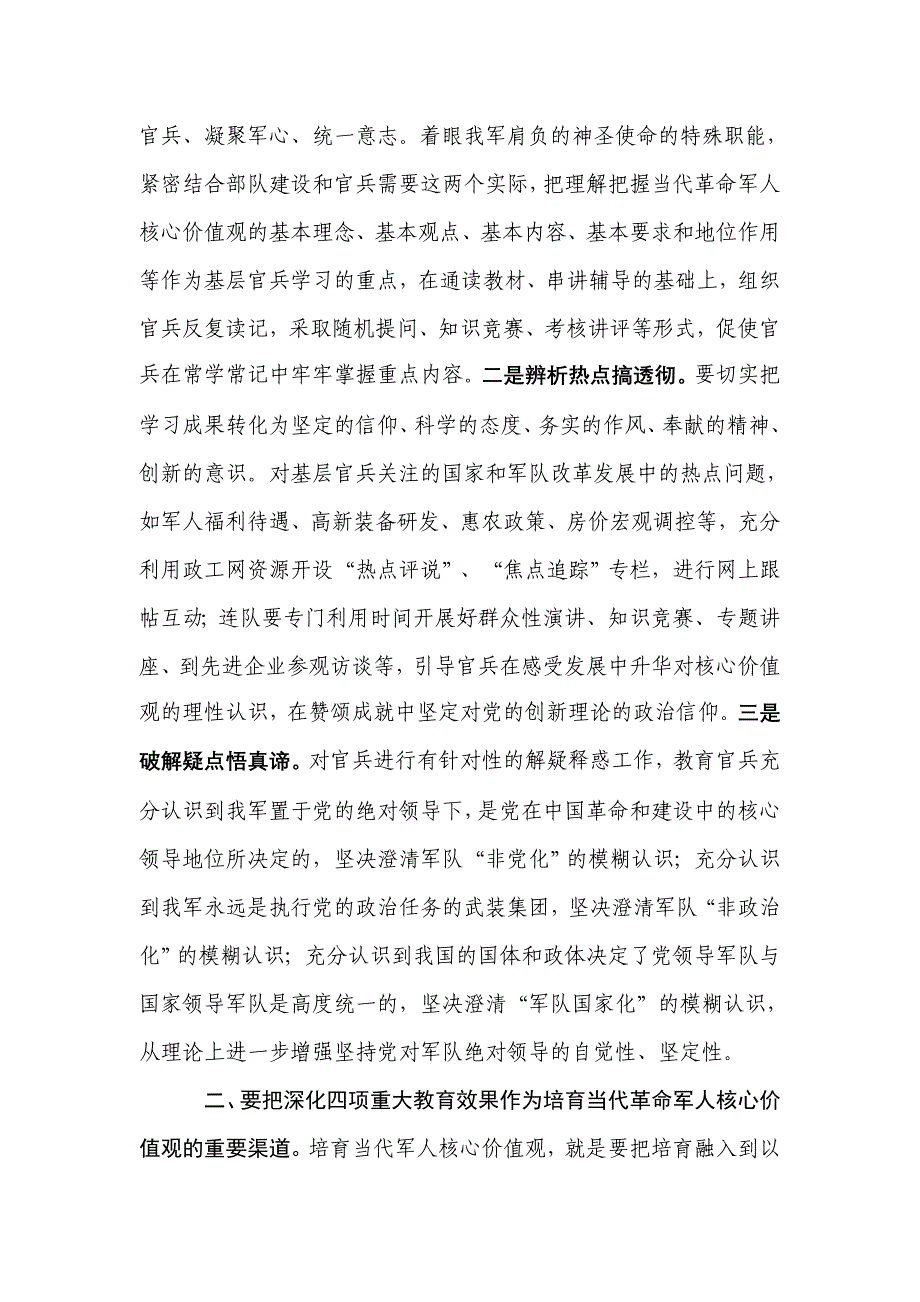 官兵、凝聚军心、统一意志。着眼我军肩负的神圣使命的特殊职能，
紧密结合部队建设和官兵需要这两个实际，把理解把握当代革命军人
核心价值观的基本理念、基本观点、基本内容、基本要求和地位作用
等作为基层官兵学习的重点，在通读教材、串讲辅导的基础上，组织
官兵反复读记，采取随机提问、知识竞赛、考核讲评等形式，促使官
兵在常学常记中牢牢掌握重点内容。二是辨析热点搞透彻。要切实把
学习成果转化为坚定的信仰、科学的态度、务实的作风、奉献的精神、
创新的意识。对基层官兵关注的国家和军队改革发展中的热点问题，
如军人福利待遇、高新装备研发、惠农政策、房价宏观调控等，充分
利用政工网资源开设“热点评说”、“焦点追踪”专栏，进行网上跟
帖互动；连队要专门利用时间开展好群众性演讲、知识竞赛、专题讲
座、到先进企业参观访谈等，引导官兵在感受发展中升华对核心价值
观的理性认识，在赞颂成就中坚定对党的创新理论的政治信仰。三是
破解疑点悟真谛。对官兵进行有针对性的解疑释惑工作，教育官兵充
分认识到我军置于党的绝对领导下，是党在中国革命和建设中的核心
领导地位所决定的，坚决澄清军队“非党化”的模糊认识；充分认识
到我军永远是执行党的政治任务的武装集团，坚决澄清军队“非政治
化”的模糊认识；充分认识到我国的国体和政体决定了党领导军队与
国家领导军队是高度统一的，坚决澄清“军队国家化”的模糊认识，
从理论上进一步增强坚持党对军队绝对领导的自觉性、坚定性。
二、要把深化四项重大教育效果作为培育当代革命军人核心价
值观的重要渠道。培育当代军人核心价值观，就是要把培育融入到以